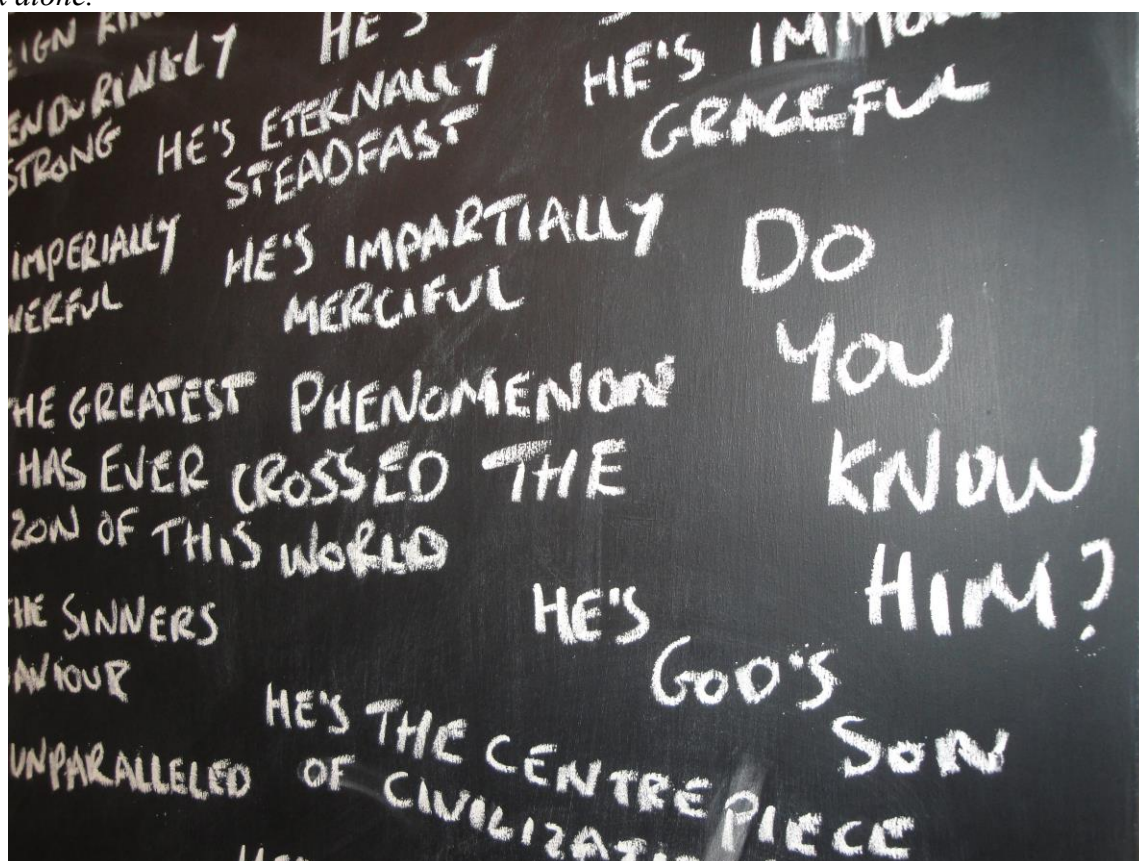 alone.
HE'S
ENDURINGLY
STRONG
HE'S ETERNALLY
STEADFAST
HE'S
GRACEFUL
IMPERIALLY
HE'S IMPARTIALLY
MERCIFUL
DO
YOU
KNOW
HIM?
HE GREATEST PHENOMENON
HAS EVER CROSSED THE
ZON OF THIS WORLD
THE SINNERS
AVIOUR
HE'S
GOD'S
SON
HE'S THE CENTRE PIECE
OF
UNPARALLELED